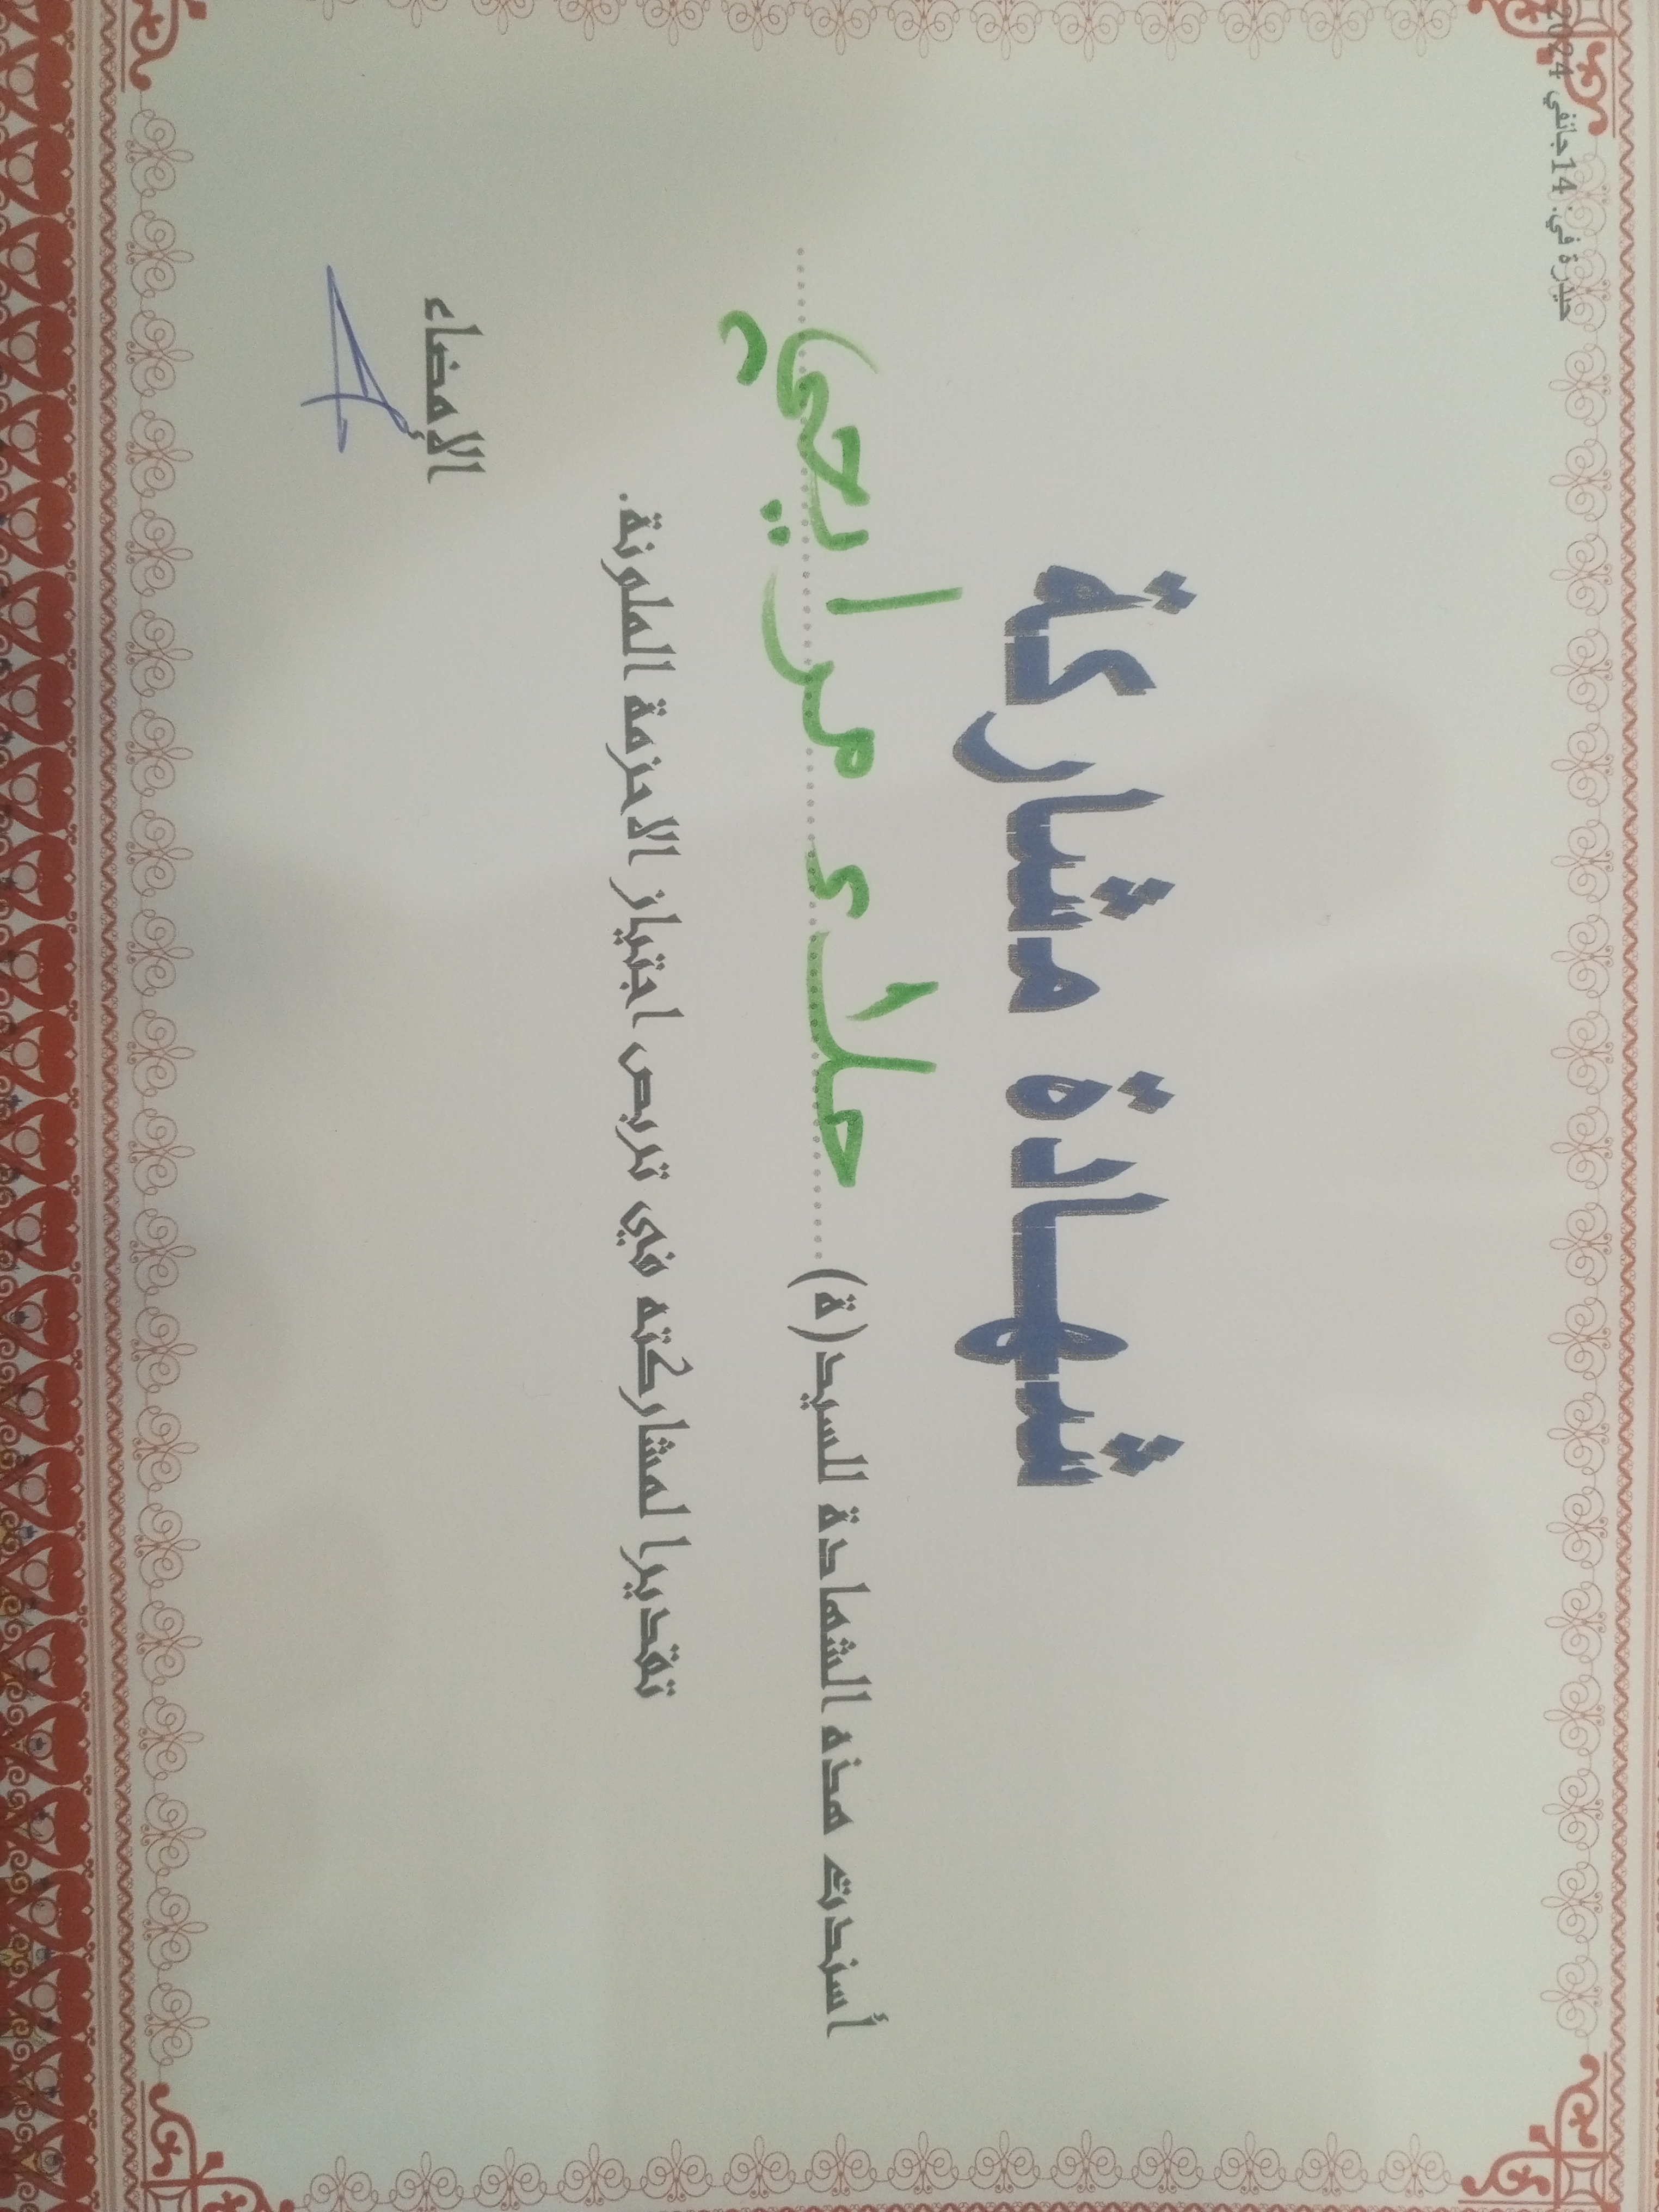 حيدرة في: 14 جانفي 2024
شهادة مشاركة
أسندت هذه الشهادة للسيد(ة) مرايحي
تقديرا لمشاركته في تربص اجتياز الاحزمة الملونة.
الإمضاء